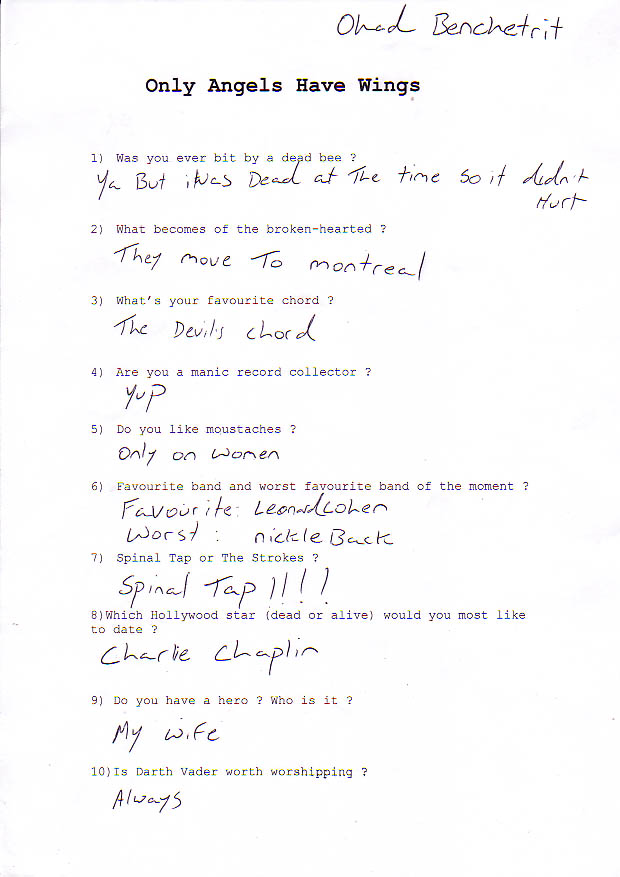 Ohad Benchetrit
Only Angels Have Wings
1) Was you ever bit by a dead bee ?
Ya But itWas Dead at The time so it didn't
Hurt
2) What becomes of the broken-hearted ?
They move To montreal
3) What's your favourite chord ?
The Devil's chord
4) Are you a manic record collector ?
Yup
5) Do you like moustaches ?
Only on women
6) Favourite band and worst favourite band of the moment ?
Favourite: Leonard Cohen
Worst : nickle Back
7) Spinal Tap or The Strokes ?
Spinal Tap !!!!
8)Which Hollywood star (dead or alive) would you most like
to date ?
Charlie Chaplin
9) Do you have a hero ? Who is it ?
My wife
10)Is Darth Vader worth worshipping ?
Always